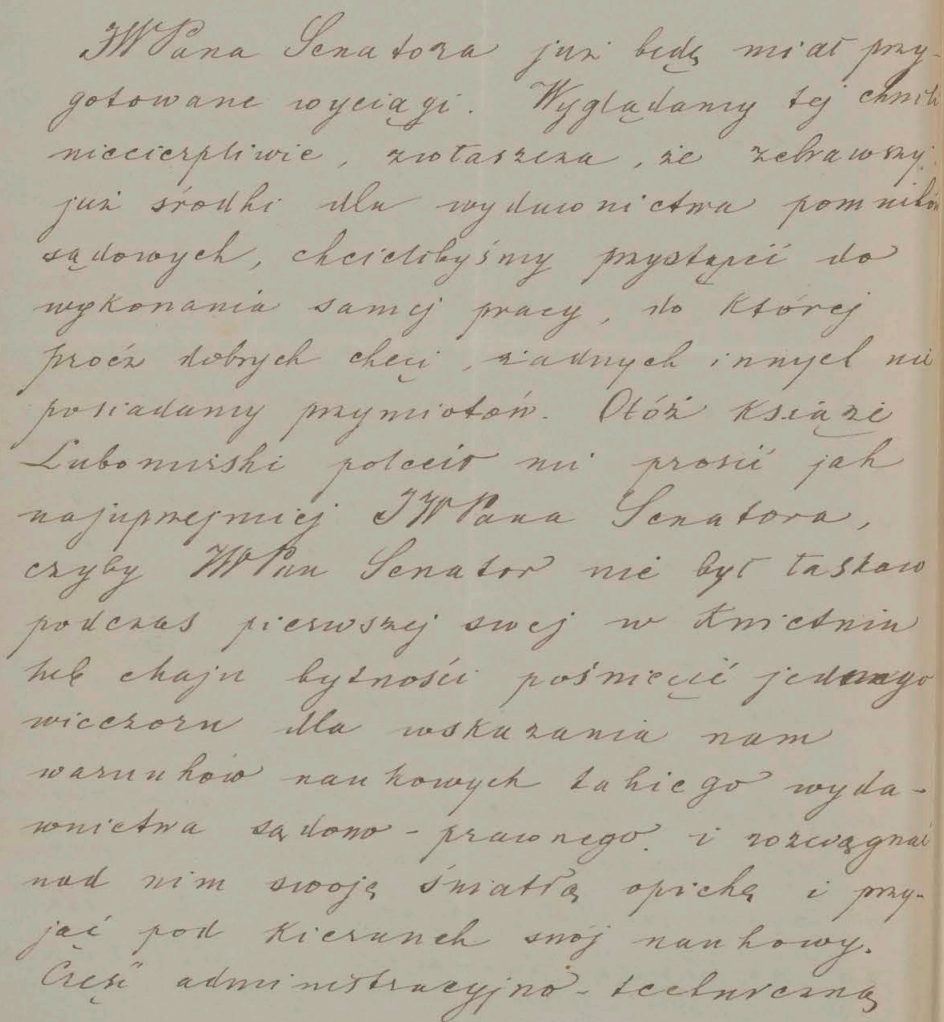 JWPana Senatora już będę miał przy-
gotowane wyciągi. Wyglądamy tej chwili
niecierpliwie, zwłaszcza, że zebrawszy
już środki dla wydawnictwa pomników
sądowych, chcielibyśmy przystąpić do
wykonania samej pracy, do której
prócz dobrych chęci, żadnych innych nie
posiadamy przymiotów. Otóż Książe
Lubomirski polecił mi prosić jak
najuprzejmiej JWPana Senatora,
czyby JWPan Senator nie był łaskaw
podczas pierwszej swej w Kwietniu
lub Maju bytności poświęcić jednego
wieczoru dla wskazania nam
warunków naukowych takiego wyda-
wnictwa sądowo-prawnego i rozciągnąć
nad nim swoją światłą opiekę i przy-
jąć pod kierunek swój naukowy.
Część administracyjno-techniczną